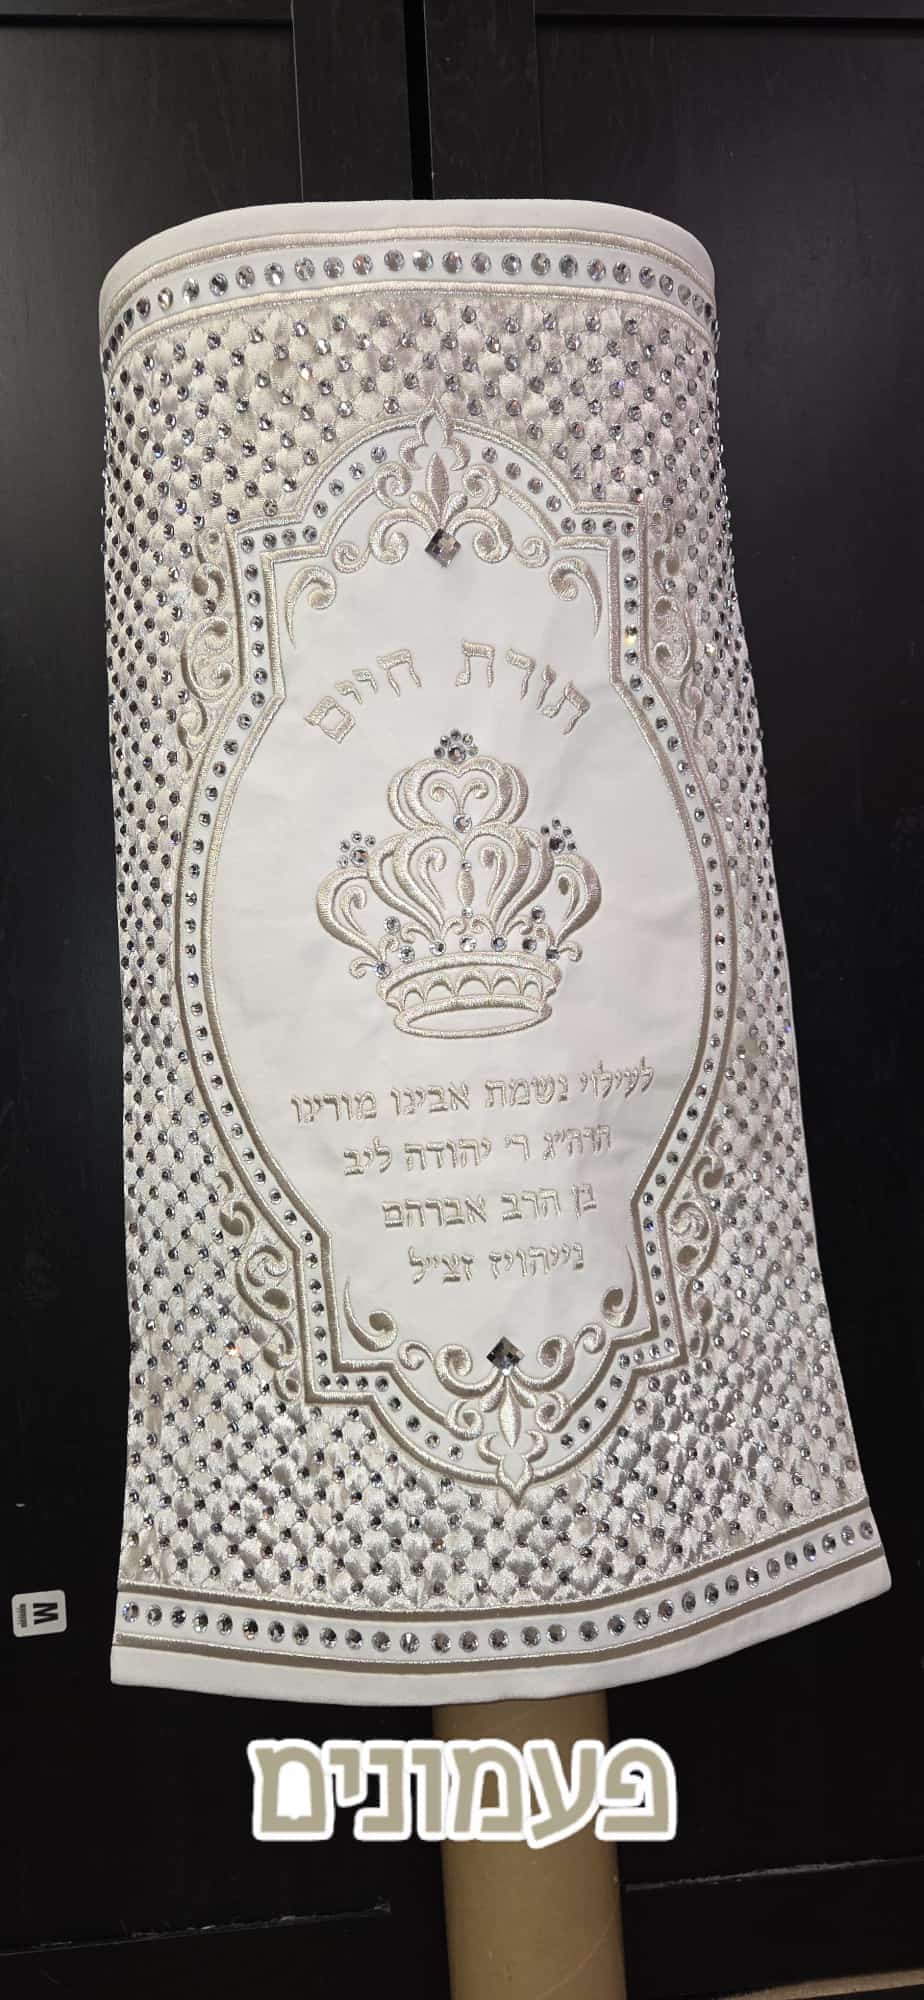 תורת חיים
לעילוי נשמת אבינו מורינו
הרה״ג ר׳ יהודה ליב
בן הרב אברהם
נייהויז זצ״ל
M
פעמונים